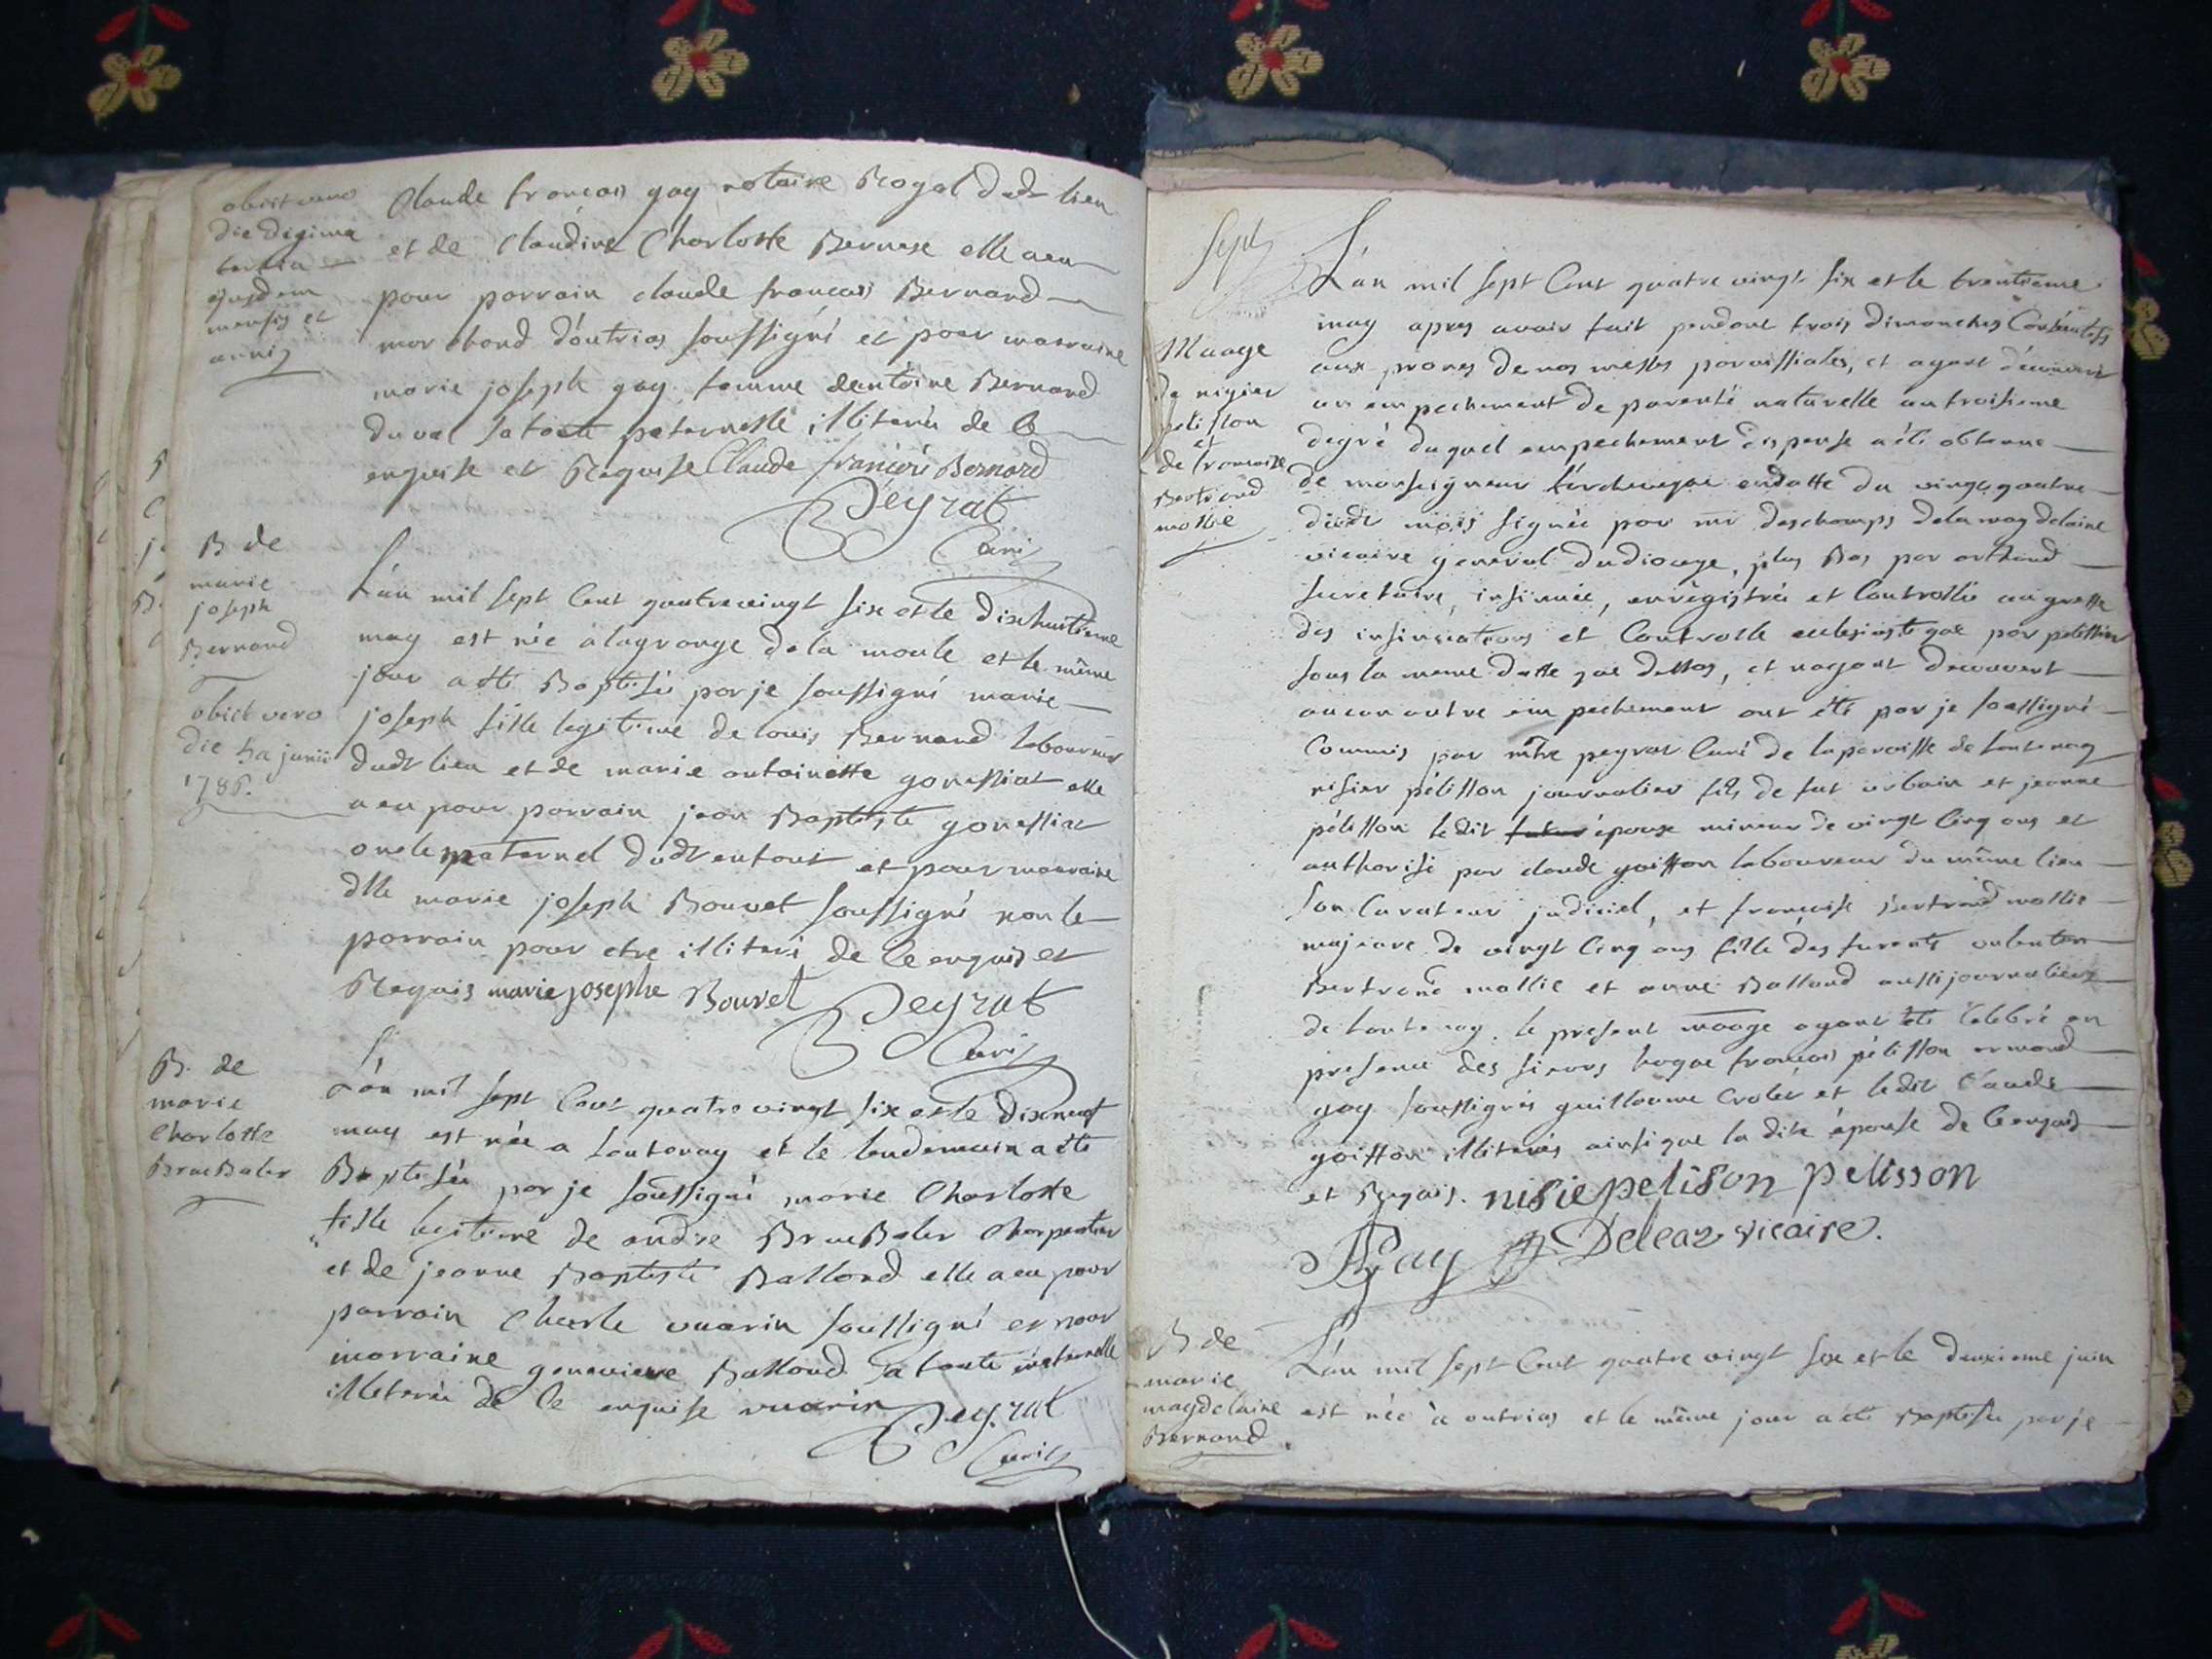 obiit vero
die decima
tertia
ejusdem
mensis et
anni
Claude françois gay notaire Royal dudt lieu
et de Claudine Charlotte Bernase elle a eu
pour parrain claude françois Bernard
marchand d'outrias soussigné et pour marraine
marie joseph gay femme d'entoine Bernard
duval sa tante paternelle illiterée de ce
enquise et Requise Claude françois Bernard
Peyrat
Curé
B de
marie
joseph
Bernard
obiit vero
die 5a junii
1786.
L'an mil sept Cent quatre vingt six et le dixhuitieme
may est née a la grange de la moule et le même
jour a été Baptisée par je soussigné marie
joseph fille legitime de louis Bernand laboureur
dudt lieu et de marie antoinette gonessiat elle
a eu pour parrain jean Baptiste gonessiat
oncle maternel dudt et pour marraine
dlle marie joseph Bouvet soussigné non le
parrain pour etre illiteré de ce enquis et
Requis marie josephe Bouvet
Peyrat
Curé
B. de
marie
Charlotte
BrucBaler
L'an mil sept Cent quatre vingt six et le dixneuf
may est née a lantenay et le lendemain a été
Baptisée par je soussigné marie Charlotte
fille legitime de andre BrucBaler Charpentier
et de jeanne Baptiste Balland elle a eu pour
parrain Charle vuarin soussigné et pour
marraine genevieve Balland sa tante maternelle
illiterée de ce enquise vuarin
Peyrat
Curé
Sept
Maage
de nizier
pelisson
et
de francoise
Bertrand
mollie
L'an mil sept Cent quatre vingt six et le trentieme
may apres avoir fait pendant trois dimanches Consecutifs
aux prones de nos messes paroissiales, et ayant decouvert
un empechement de parenté naturelle au troisieme
degré duquel empechement dispense a été obtenue
de monseigneur l'archeveque en datte du vingt quatre
dudt mois signée par mr deschamps de la magdelaine
vicaire general du diocèze, plus Bas par
secretaire, insinuée, enregistrée et Controllée au greffe
des insinuations et Controlle eclesiastique par pelissier
sous la meme datte que dessus, et n'ayant decouvert
aucun autre empechement ont été par je soussigné
Commis par mtre peyrat Curé de la paroisse de lantenay
nisier pélisson journalier fils de fut urbain et jeanne
pélisson ledit époux mineur de vingt cinq ans et
authorisé par claude goiffon laboureur du même lieu
son Curateur judiciel, et françoise Bertrand mollie
majeure de vingt cinq ans fille des furents valentin
Bertrand mollie et anne Balland aussi journaliers
de lantenay. le present maage ayant été Celebré en
presence des sieurs hugue françois pélisson armand
gay soussignés guillaume Crolet et ledit Claude
goiffon illiterés ainsi que la dite épouse de ce enquis
et Requis. nisie pelison pelisson
Gay Deleaz vicaire.
B de
marie
magdelaine
Bernand
L'an mil sept Cent quatre vingt six et le deuxieme juin
est née à outrias et le même jour a été Baptisée par je